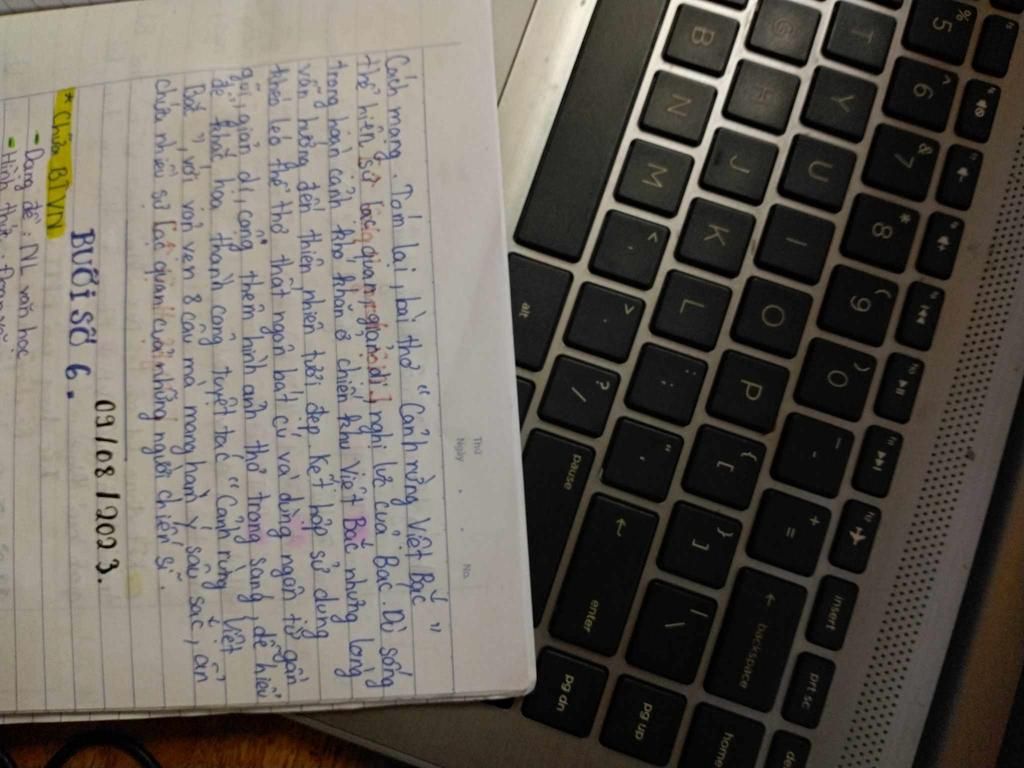 Thứ
Ngày . . No.
Cách mạng. Tóm lại, bài thơ "Cảnh rừng Việt Bắc"
thể hiện sự lạc quan, giản dị, nghị lực của Bác. Dù sống
trong hoàn cảnh khó khăn ở chiến khu Việt Bắc nhưng lòng
vẫn hướng đến thiên nhiên tươi đẹp. Kết hợp sử dụng
khéo léo thể thơ thất ngôn bát cú và dùng ngôn từ gần
gũi, giản dị, cộng thêm hình ảnh thơ trong sáng, dễ hiểu
để khắc họa thành công tuyệt tác "Cảnh rừng Việt
Bắc", với vỏn vẹn 8 câu mà mang hàm ý sâu sắc, ẩn
chứa nhiều sự lạc quan của những người chiến sĩ.
09/08/2023.
BUỔI SỐ 6.
* Chữa BTVN
- Dạng đề: NL văn học
- Hình thức: Đoạn văn
% 5
^ 6
& 7
* 8
( 9
) 0
_ -
+ =
← backspace
home
T
Y
U
I
O
P
{ [
} ]
| \
pg up
J
K
L
: ;
" '
enter
pg dn
B
N
M
< ,
> .
? /
pause
alt
insert
prt sc
de